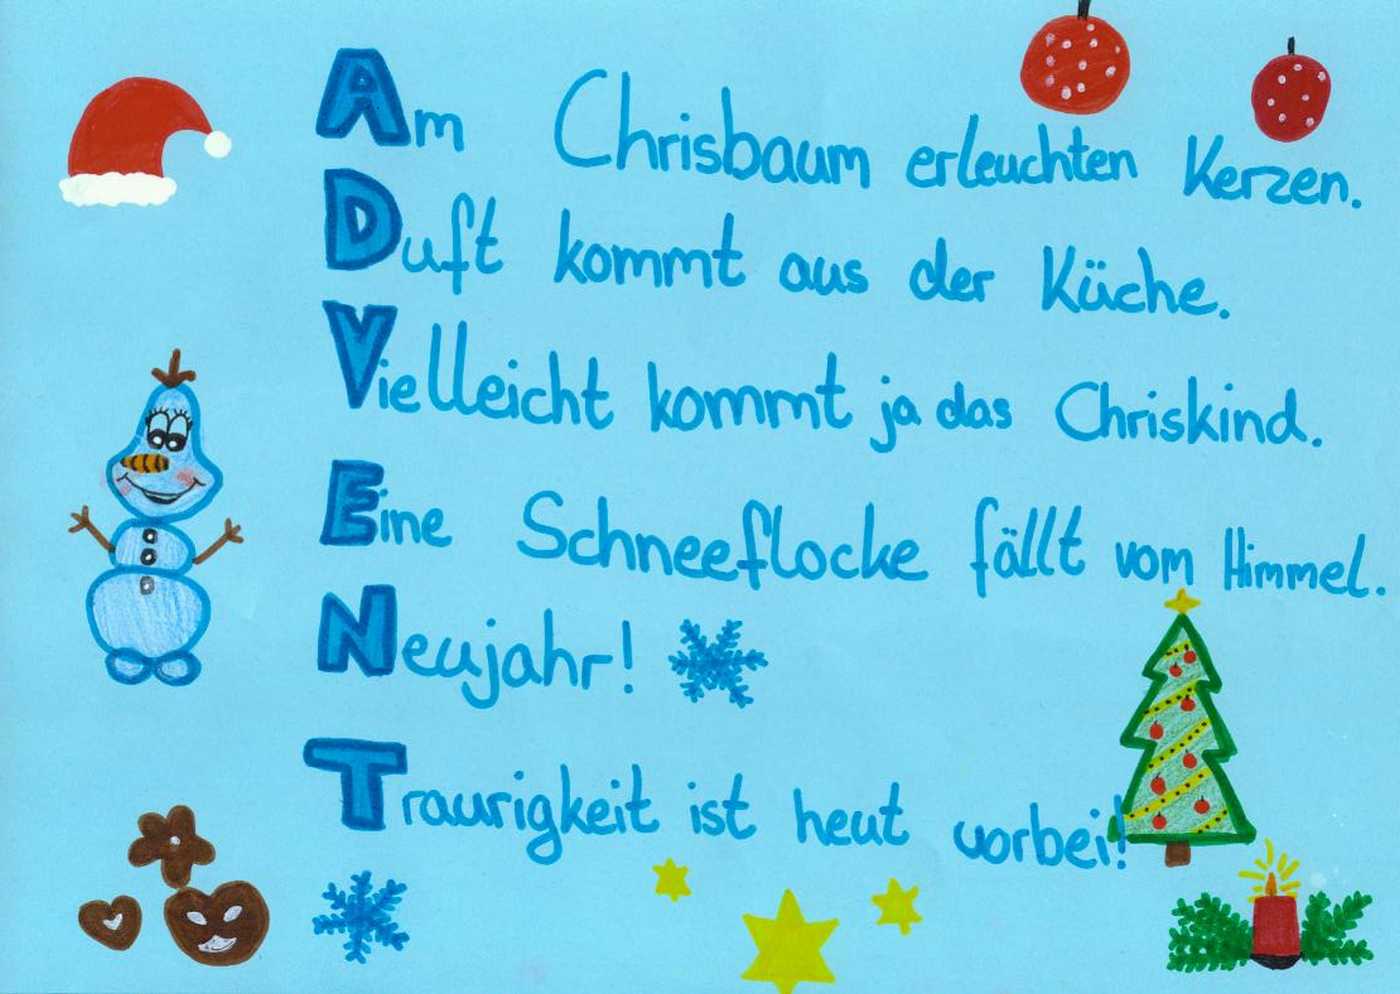 Am Chrisbaum erleuchten Kerzen.
Duft kommt aus der Küche.
Vielleicht kommt ja das Chriskind.
Eine Schneeflocke fällt vom Himmel.
Neujahr!
Traurigkeit ist heut vorbei!